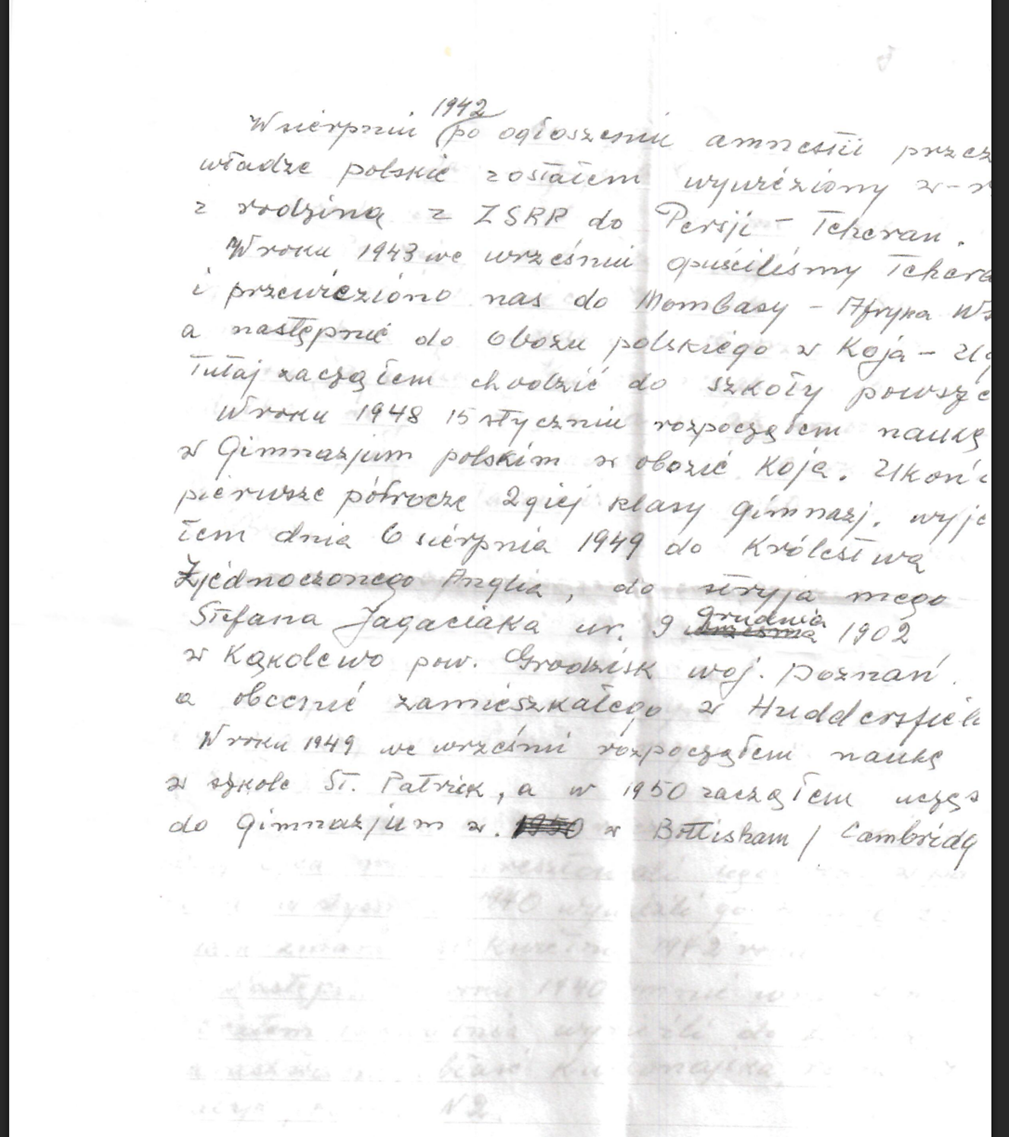 1942
W sierpniu po ogłoszeniu amnestii przez
władze polskie zostałem wywieziony w-
z rodziną z ZSRR do Persji - Teheran.
W roku 1943 we wrześniu opuściliśmy Tehera
i przewieziono nas do Mombasy - Afryka Ws
a następnie do obozu polskiego w Koja - Ug
Tutaj zacząłem chodzić do szkoły powsze
W roku 1948 15 stycznia rozpocząłem naukę
w Gimnazjum polskim w obozie Koja. Ukońc
pierwsze półrocze 2giej klasy gimnazj. wyje
łem dnia 6 sierpnia 1949 do Królestwa
Zjednoczonego Anglia, do stryja mego
Stefana Jagaciaka ur. 9 grudnia 1902
w Kąkolewo pow. Grodzisk woj. Poznań.
a obecnie zamieszkałego w Huddersfiel
W roku 1949 we wrześniu rozpocząłem naukę
w szkole St. Patrick, a w 1950 zacząłem uczęs
do Gimnazjum w. 1950 w Bottisham / Cambridg